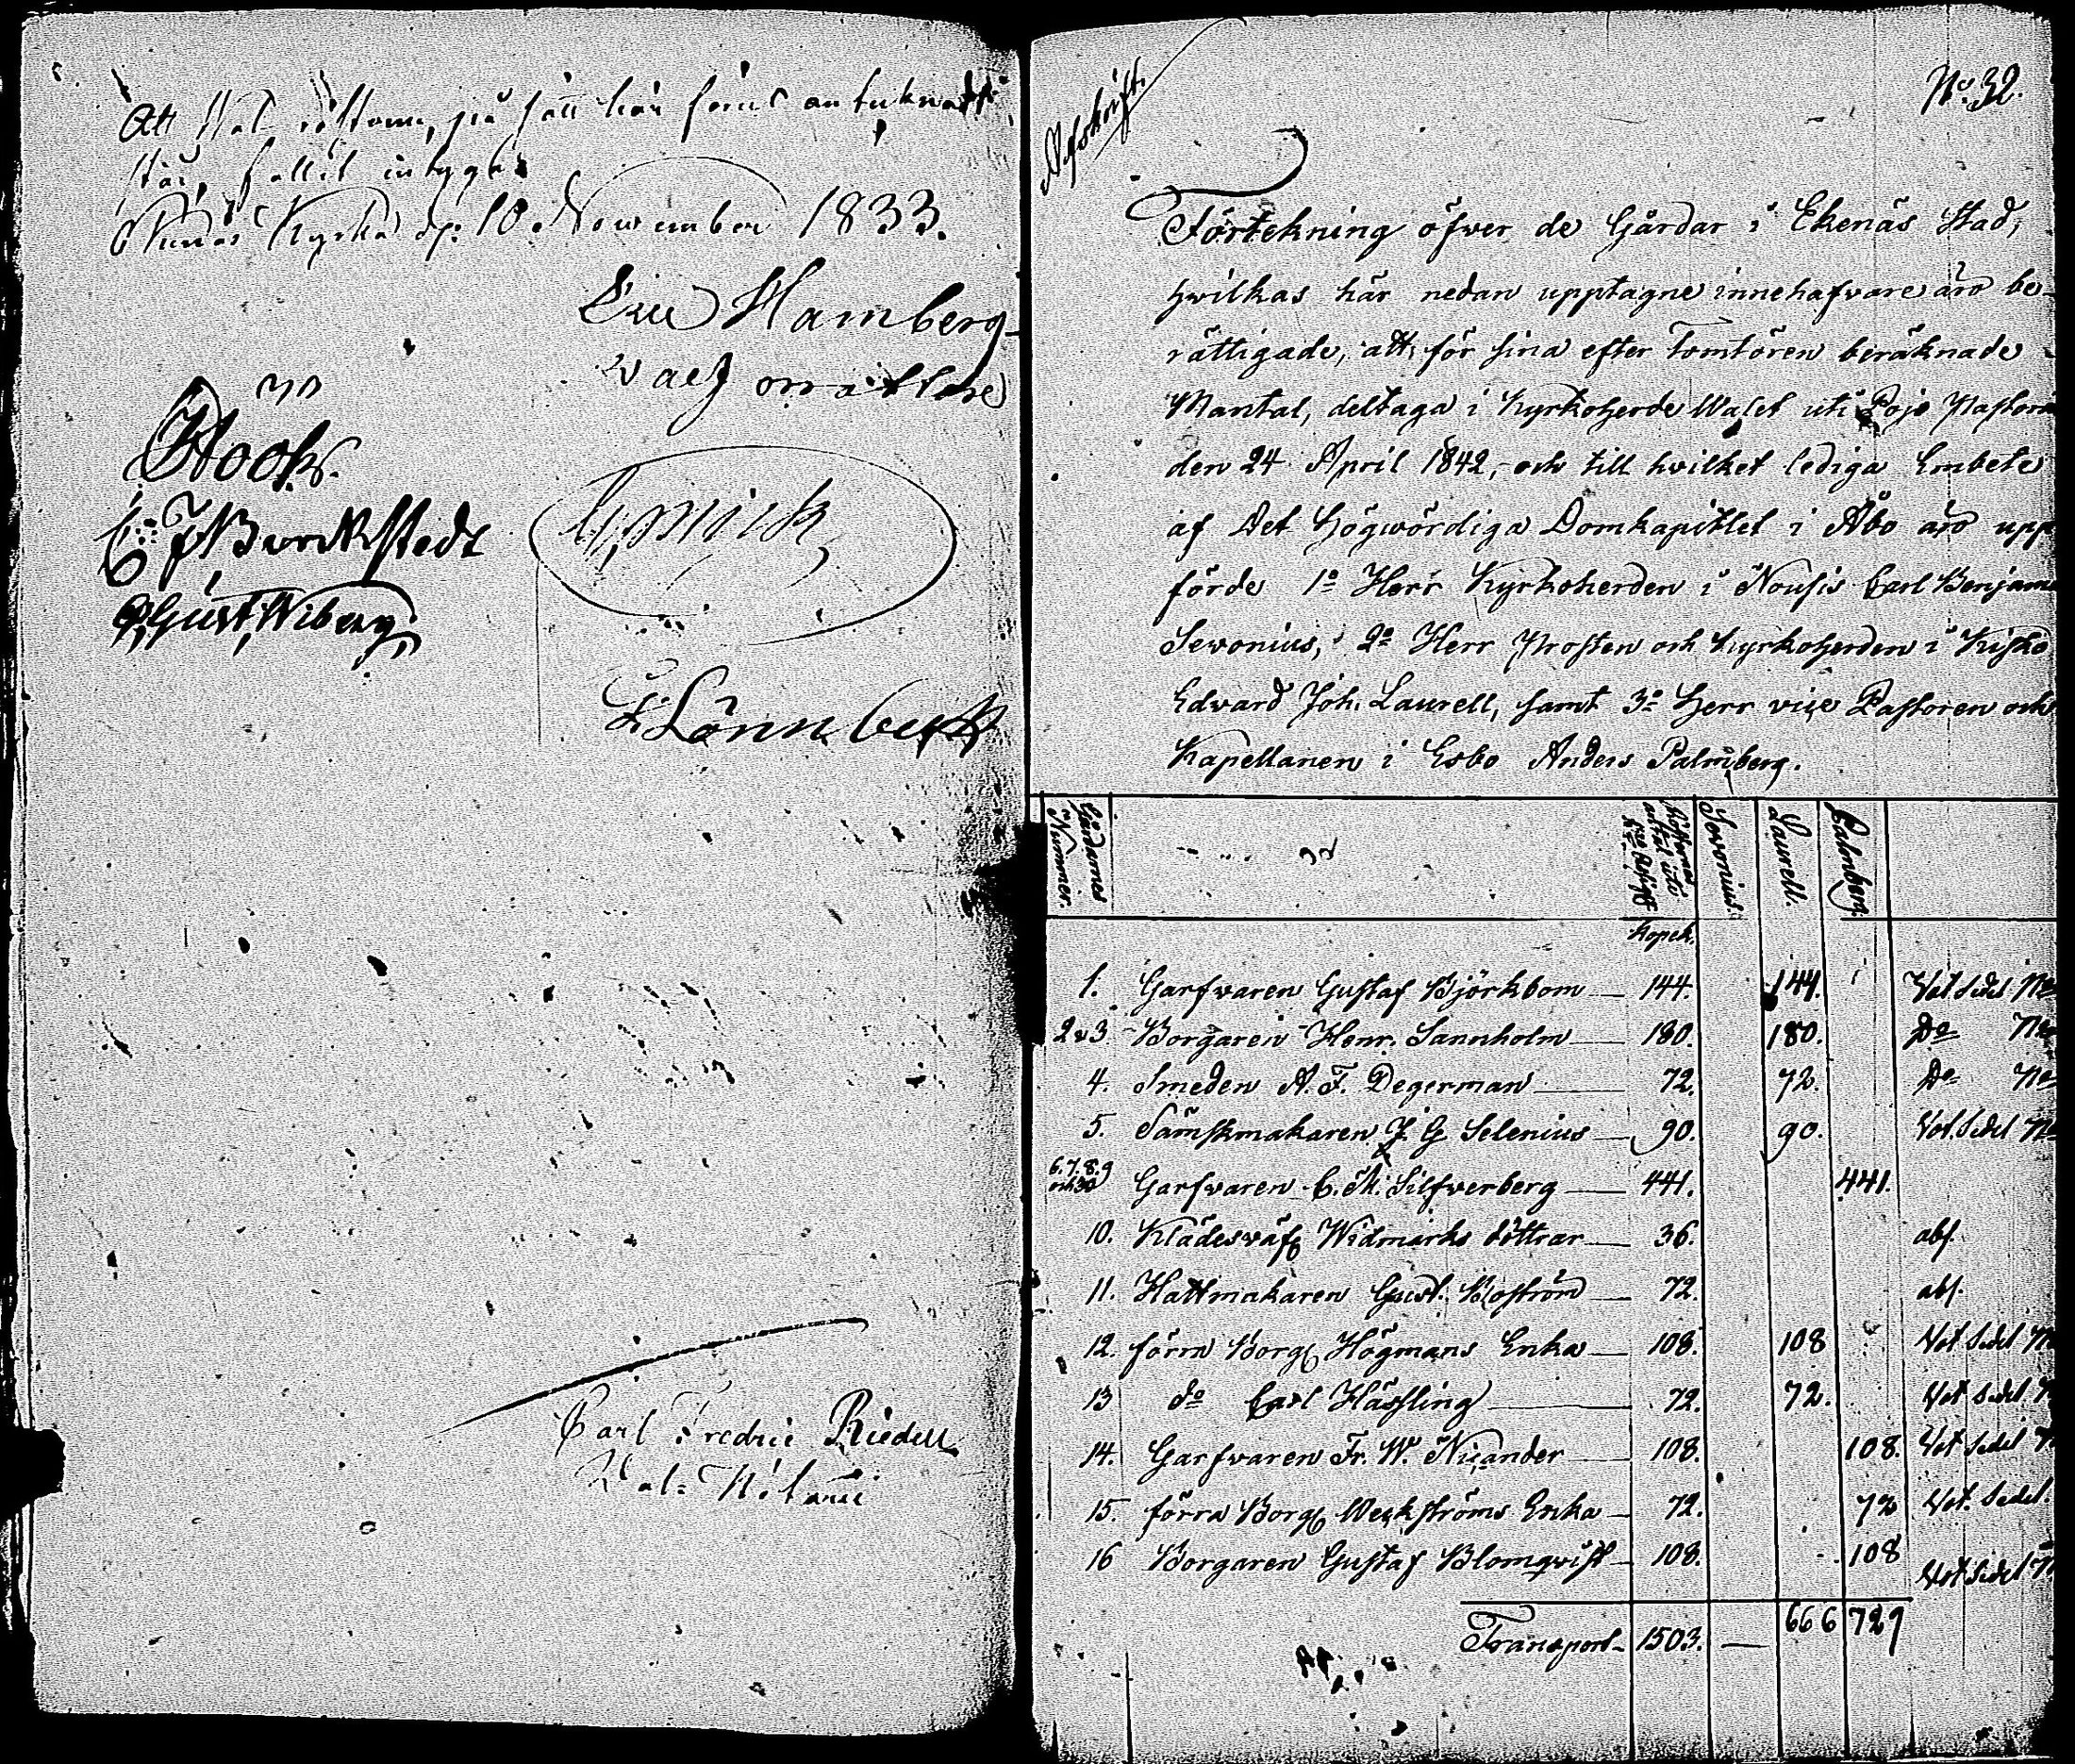 Att Val rösterne, på sätt här förut antecknadt
står, fallit intygar
Kyrka d. 10 November 1833.
Eric Hamberg
Höök
C. F. Burckstedt
Gust. Wiberg
Lönnbeck
Carl Fredric Riedell
Val-Notarie
Afskrift.
No. 32.
Förtekning öfver de Gårdar i Ekenäs Stad,
hvilkas här nedan upptagne innehafvare äro be-
rättigade, att för sina efter Tomtören beräknade
Mantal, deltaga i Kyrkoherde Walet uti Pojo Pastorat
den 24 April 1842, och till hvilket lediga Embete
af Det Högwördiga Domkapitlet i Åbo äro upp
förde 1o Herr Kyrkoherden i Nousis Carl Benjam
Sevonius, 2o Herr Prosten och Kyrkoherden i Kisko
Edvard Joh. Laurell, samt 3o Herr vice Pastoren och
Kapellanen i Esbo Anders Palmberg.
Gårdarnes Nummer. Sevonius. Laurell. Palmberg.
Kopek.
1. Garfvaren Gustaf Björkbom 144. 144. Vot sedel No
2 o 3 Borgaren Henr. Sannholm 180. 180. Do No
4. Smeden A. F. Degerman 72. 72. Do No
5. Sämskmakaren J. G Selenius 90. 90. Vot. Sedel No
6. 7. 8. 9 och 30 Garfvaren C. M. Silfverberg 441. 441.
10. Klädesväfv Widmarks döttrar 36. abs.
11. Hattmakaren Gust. Boström 72. abs.
12. förra Borg Högmans Enka 108. 108 Vot Sedel No
13 do Carl Hässling 72. 72. Vot Sedel N
14. Garfvaren Fr. W. Nicander 108. 108. Vot Sedel N
15. förra Borg Weckströms Enka 72. 72 Vot. Sedel.
16 Borgaren Gustaf Blomqvist 108. 108 Vot Sedel N
Transport 1503. — 666 729